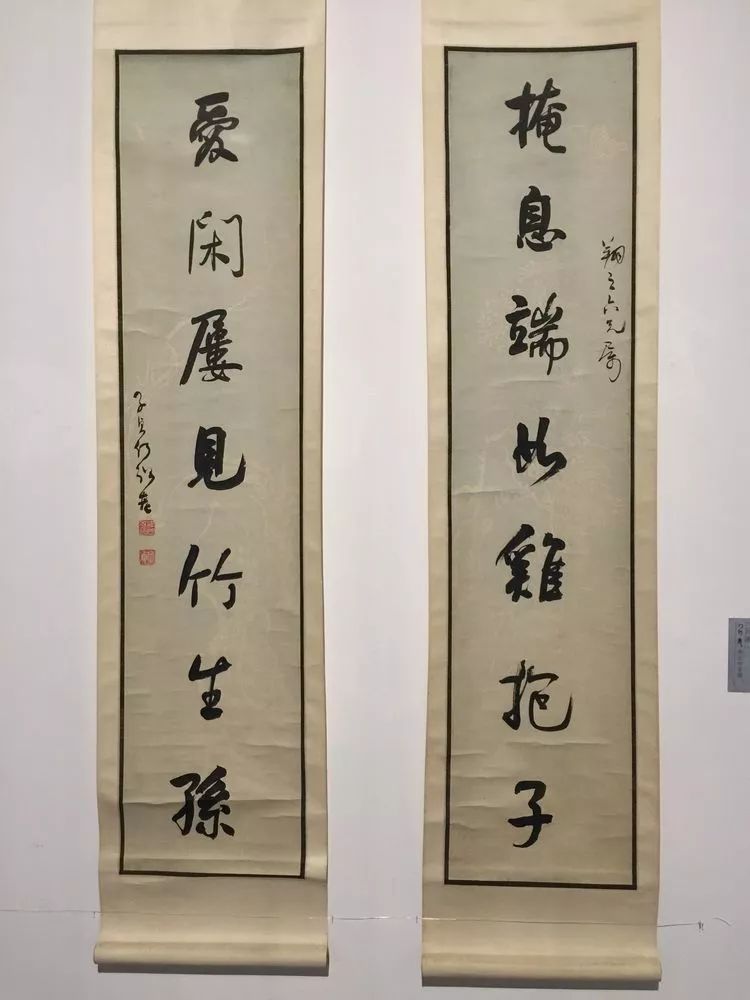 掩息端如雞抱子
翔之六兄属
愛閑屢見竹生孫
子貞何紹基